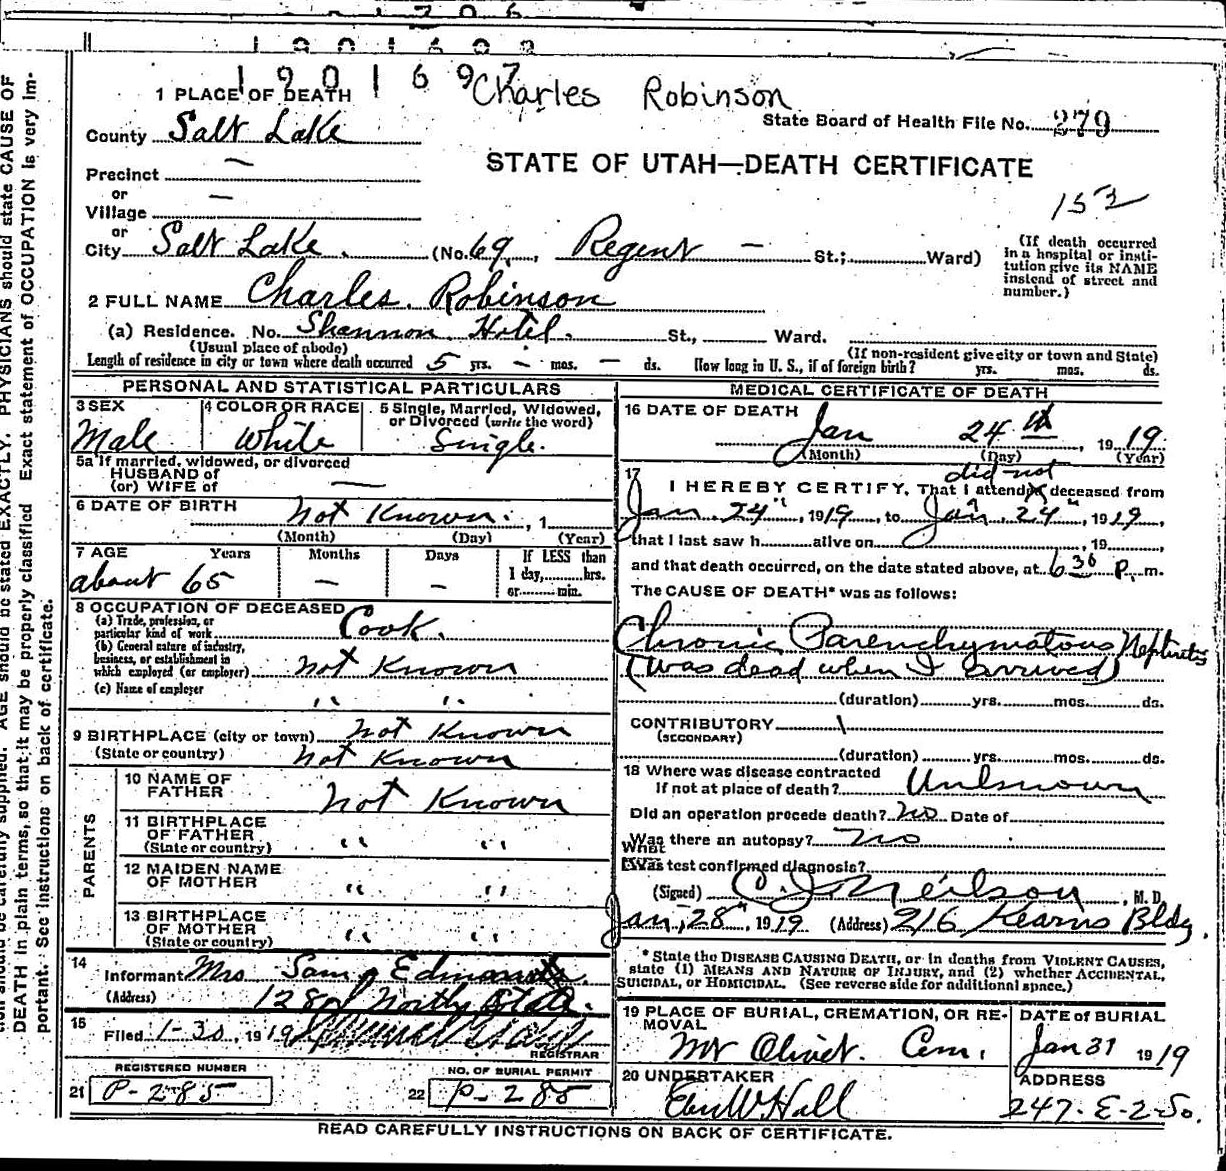 1901697
Charles Robinson
1 PLACE OF DEATH
State Board of Health File No. 279
County Salt Lake
STATE OF UTAH—DEATH CERTIFICATE
Precinct —
or
Village —
152
or
City Salt Lake. (No. 69, Regent — St.; Ward)
(If death occurred in a hospital or insti-
tution give its NAME
instead of street and
number.)
2 FULL NAME Charles. Robinson
(a) Residence. No. Shannon Hotel. St., Ward.
(Usual place of abode) (If non-resident give city or town and State)
Length of residence in city or town where death occurred 5 yrs. — mos. — ds. How long in U. S., if of foreign birth? yrs. mos. ds.
PERSONAL AND STATISTICAL PARTICULARS
3 SEX
Male
4 COLOR OR RACE
White
5 Single, Married, Widowed,
or Divorced (write the word)
Single.
5a If married, widowed, or divorced
HUSBAND of
(or) WIFE of —
6 DATE OF BIRTH Not Known. , 1
(Month) (Day) (Year)
7 AGE Years Months Days If LESS than
1 day, hrs.
or min.
about 65 — —
8 OCCUPATION OF DECEASED
(a) Trade, profession, or
particular kind of work Cook.
(b) General nature of industry,
business, or establishment in
which employed (or employer) Not Known
(c) Name of employer " "
9 BIRTHPLACE (city or town) Not Known
(State or country) Not Known
PARENTS
10 NAME OF
FATHER Not Known
11 BIRTHPLACE
OF FATHER
(State or country) " "
12 MAIDEN NAME
OF MOTHER " "
13 BIRTHPLACE
OF MOTHER
(State or country) " "
14
Informant Mrs Sam Edmonds
(Address) 128 North State.
15
Filed 1-30, 1919
REGISTRAR
REGISTERED NUMBER
21 P-285
NO. OF BURIAL PERMIT
22 P-285
MEDICAL CERTIFICATE OF DEATH
16 DATE OF DEATH
Jan 24th, 1919
(Month) (Day) (Year)
17
did not
I HEREBY CERTIFY, That I attended deceased from
Jan. 24", 1919, to Jan. 24", 1919,
that I last saw h alive on , 19 ,
and that death occurred, on the date stated above, at 630 P. m.
The CAUSE OF DEATH* was as follows:
Chronic Parenchymatous Nephritis
(Was dead when I arrived)
(duration) yrs. mos. ds.
CONTRIBUTORY \
(SECONDARY)
(duration) yrs. mos. ds.
18 Where was disease contracted
If not at place of death? Unknown
Did an operation procede death? No Date of
Was there an autopsy? No
What
Was test confirmed diagnosis?
(Signed) C. J. Neilson, M. D.
Jan, 28", 1919 (Address) 216 Kearns Bldg.
* State the DISEASE CAUSING DEATH, or in deaths from VIOLENT CAUSES,
state (1) MEANS AND NATURE OF INJURY, and (2) whether ACCIDENTAL,
SUICIDAL, or HOMICIDAL. (See reverse side for additional space.)
19 PLACE OF BURIAL, CREMATION, OR RE-
MOVAL
Mt Olivet. Cem.
DATE of BURIAL
Jan 31 1919
20 UNDERTAKER
Eber W Hall
ADDRESS
247-E-2-So.
READ CAREFULLY INSTRUCTIONS ON BACK OF CERTIFICATE.
AGE should be stated EXACTLY. PHYSICIANS should state CAUSE OF
DEATH in plain terms, so that it may be properly classified Exact statement of OCCUPATION is very im-
portant. See instructions on back of certificate.